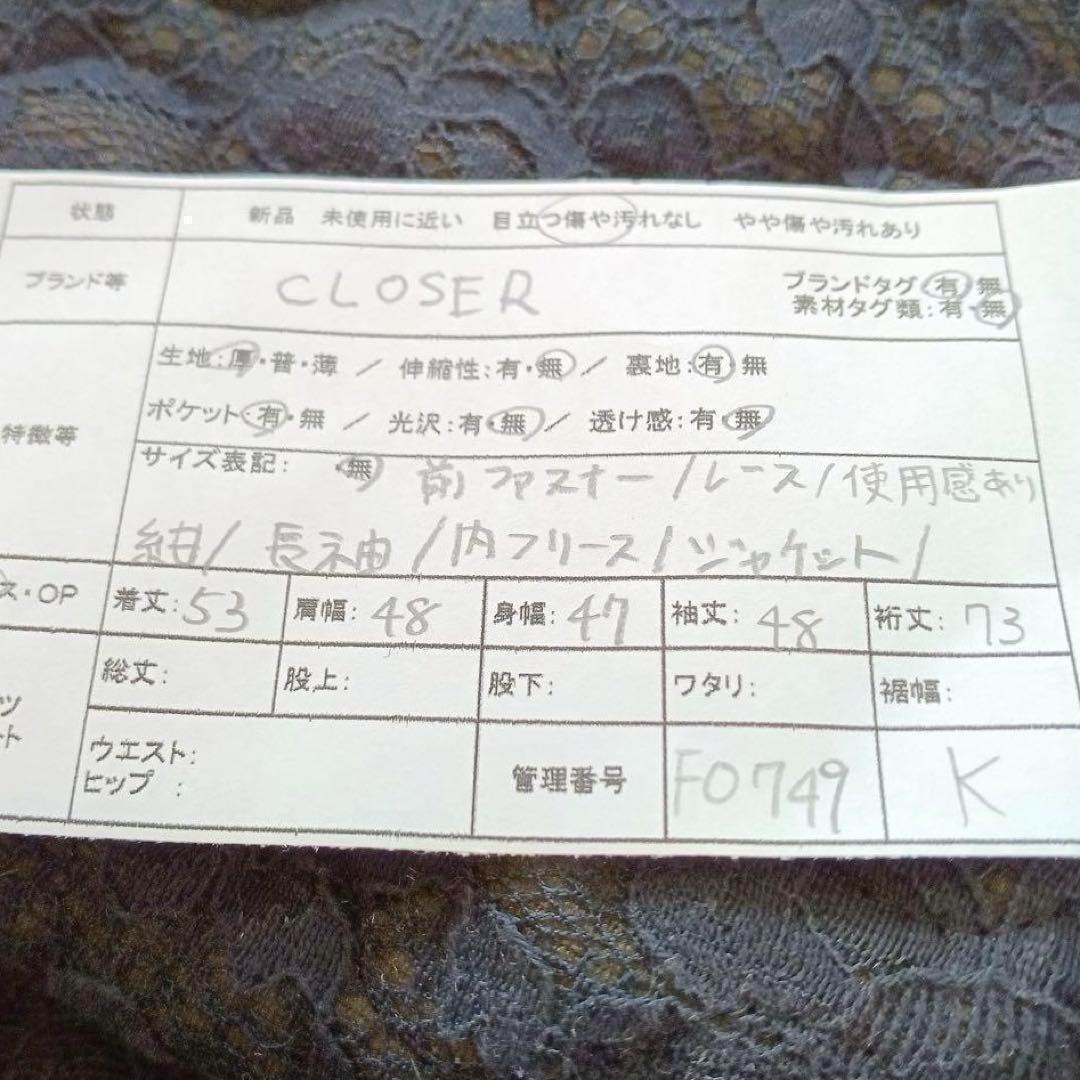 状態 新品 未使用に近い 目立つ傷や汚れなし やや傷や汚れあり
ブランド等 CLOSER ブランドタグ 有・無
素材タグ類:有・無
生地:厚・普・薄 / 伸縮性:有・無 / 裏地:有・無
特徴等 ポケット:有・無 / 光沢:有・無 / 透け感:有・無
サイズ表記: ・無 前ファスナー/レース/使用感あり
紺/長袖/内フリース/ジャケット/
ス・OP 着丈:53 肩幅:48 身幅:47 袖丈:48 裄丈:73
総丈: 股上: 股下: ワタリ: 裾幅:
ツ
ト
ウエスト:
ヒップ : 管理番号 F0749 K